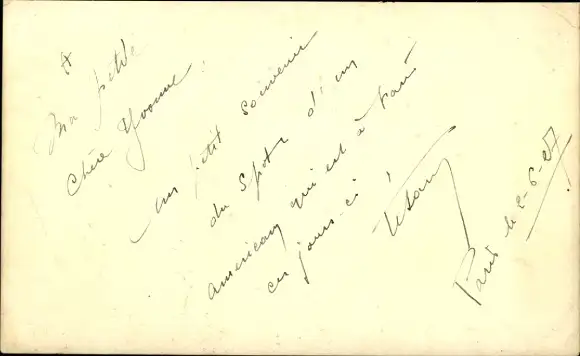 A
Ma petite
Chère Yvonne
un petit souvenir
du Spot d'un
American qui est à Paris
ces jours-ci
Paris le 2-6-27